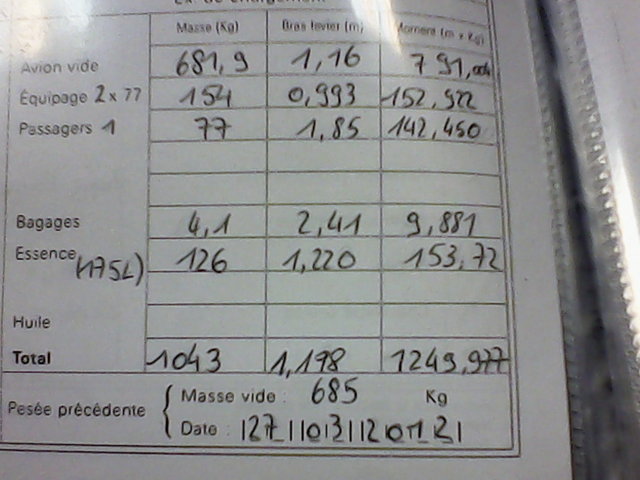 Ex. de chargement
Masse (Kg) Bras levier (m) Moment (m x Kg)
Avion vide 681,9 1,16 791,004
Équipage 2 x 77 154 0,993 152,922
Passagers 1 77 1,85 142,450
Bagages 4,1 2,41 9,881
Essence (175L) 126 1,220 153,72
Huile
Total 1043 1,198 1249,977
Pesée précédente { Masse vide : 685 Kg
Date : |27||03||2012|